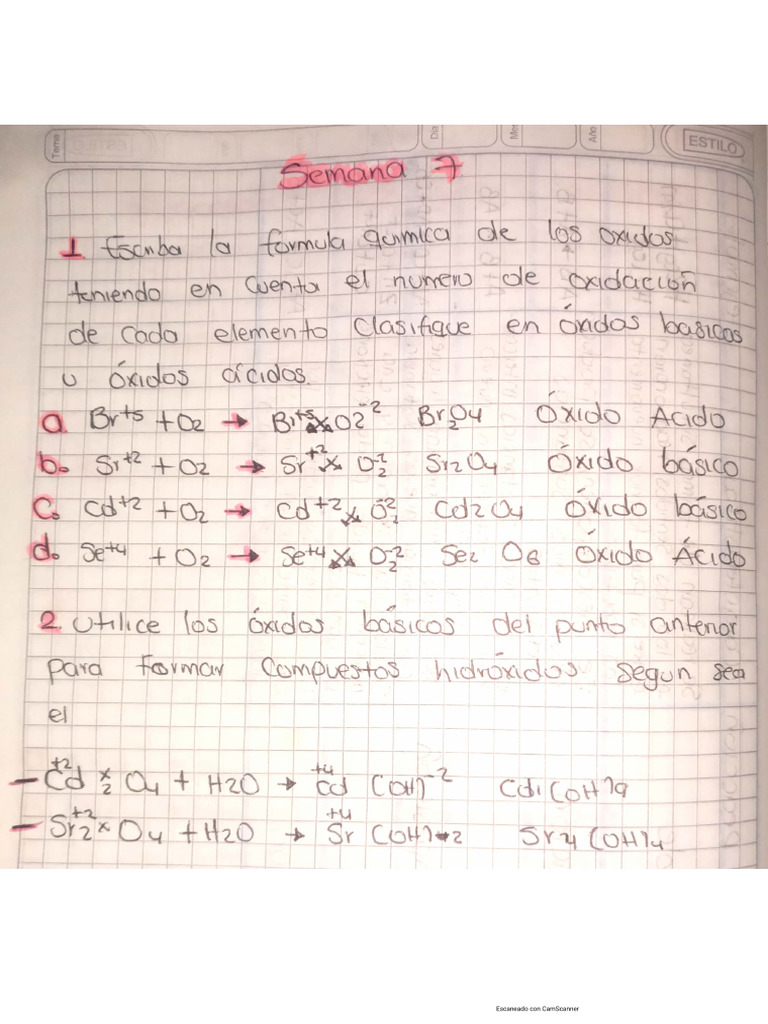 Tema
Dia
Mes
Año
ESTILO
Semana 7
1. Escriba la formula quimica de los oxidos
teniendo en cuenta el numero de oxidación
de cada elemento Clasifique en óxidos basicos
u óxidos ácidos.
a. Br+5 + O2 → Br+5 x O2-2 Br2O4 ÓXIDO Acido
b. Sr+2 + O2 → Sr+2 x O2-2 Sr2 O4 ÓXIDO básico
C. Cd+2 + O2 → Cd+2 x O2-2 Cd2 O4 ÓXIDO básico
d. Se+4 + O2 → Se+4 x O2-2 Se2 O6 ÓXIDO Ácido
2. Utilice los óxidos básicos del punto anterior
para formar compuestos hidróxidos segun sea
el
- Cd+2 x 2 O4 + H2O → Cd+4 (OH)-2
- Sr2+2 x O4 + H2O → Sr+4 (OH)-2 Sr4 (OH)4
Escaneado con CamScanner